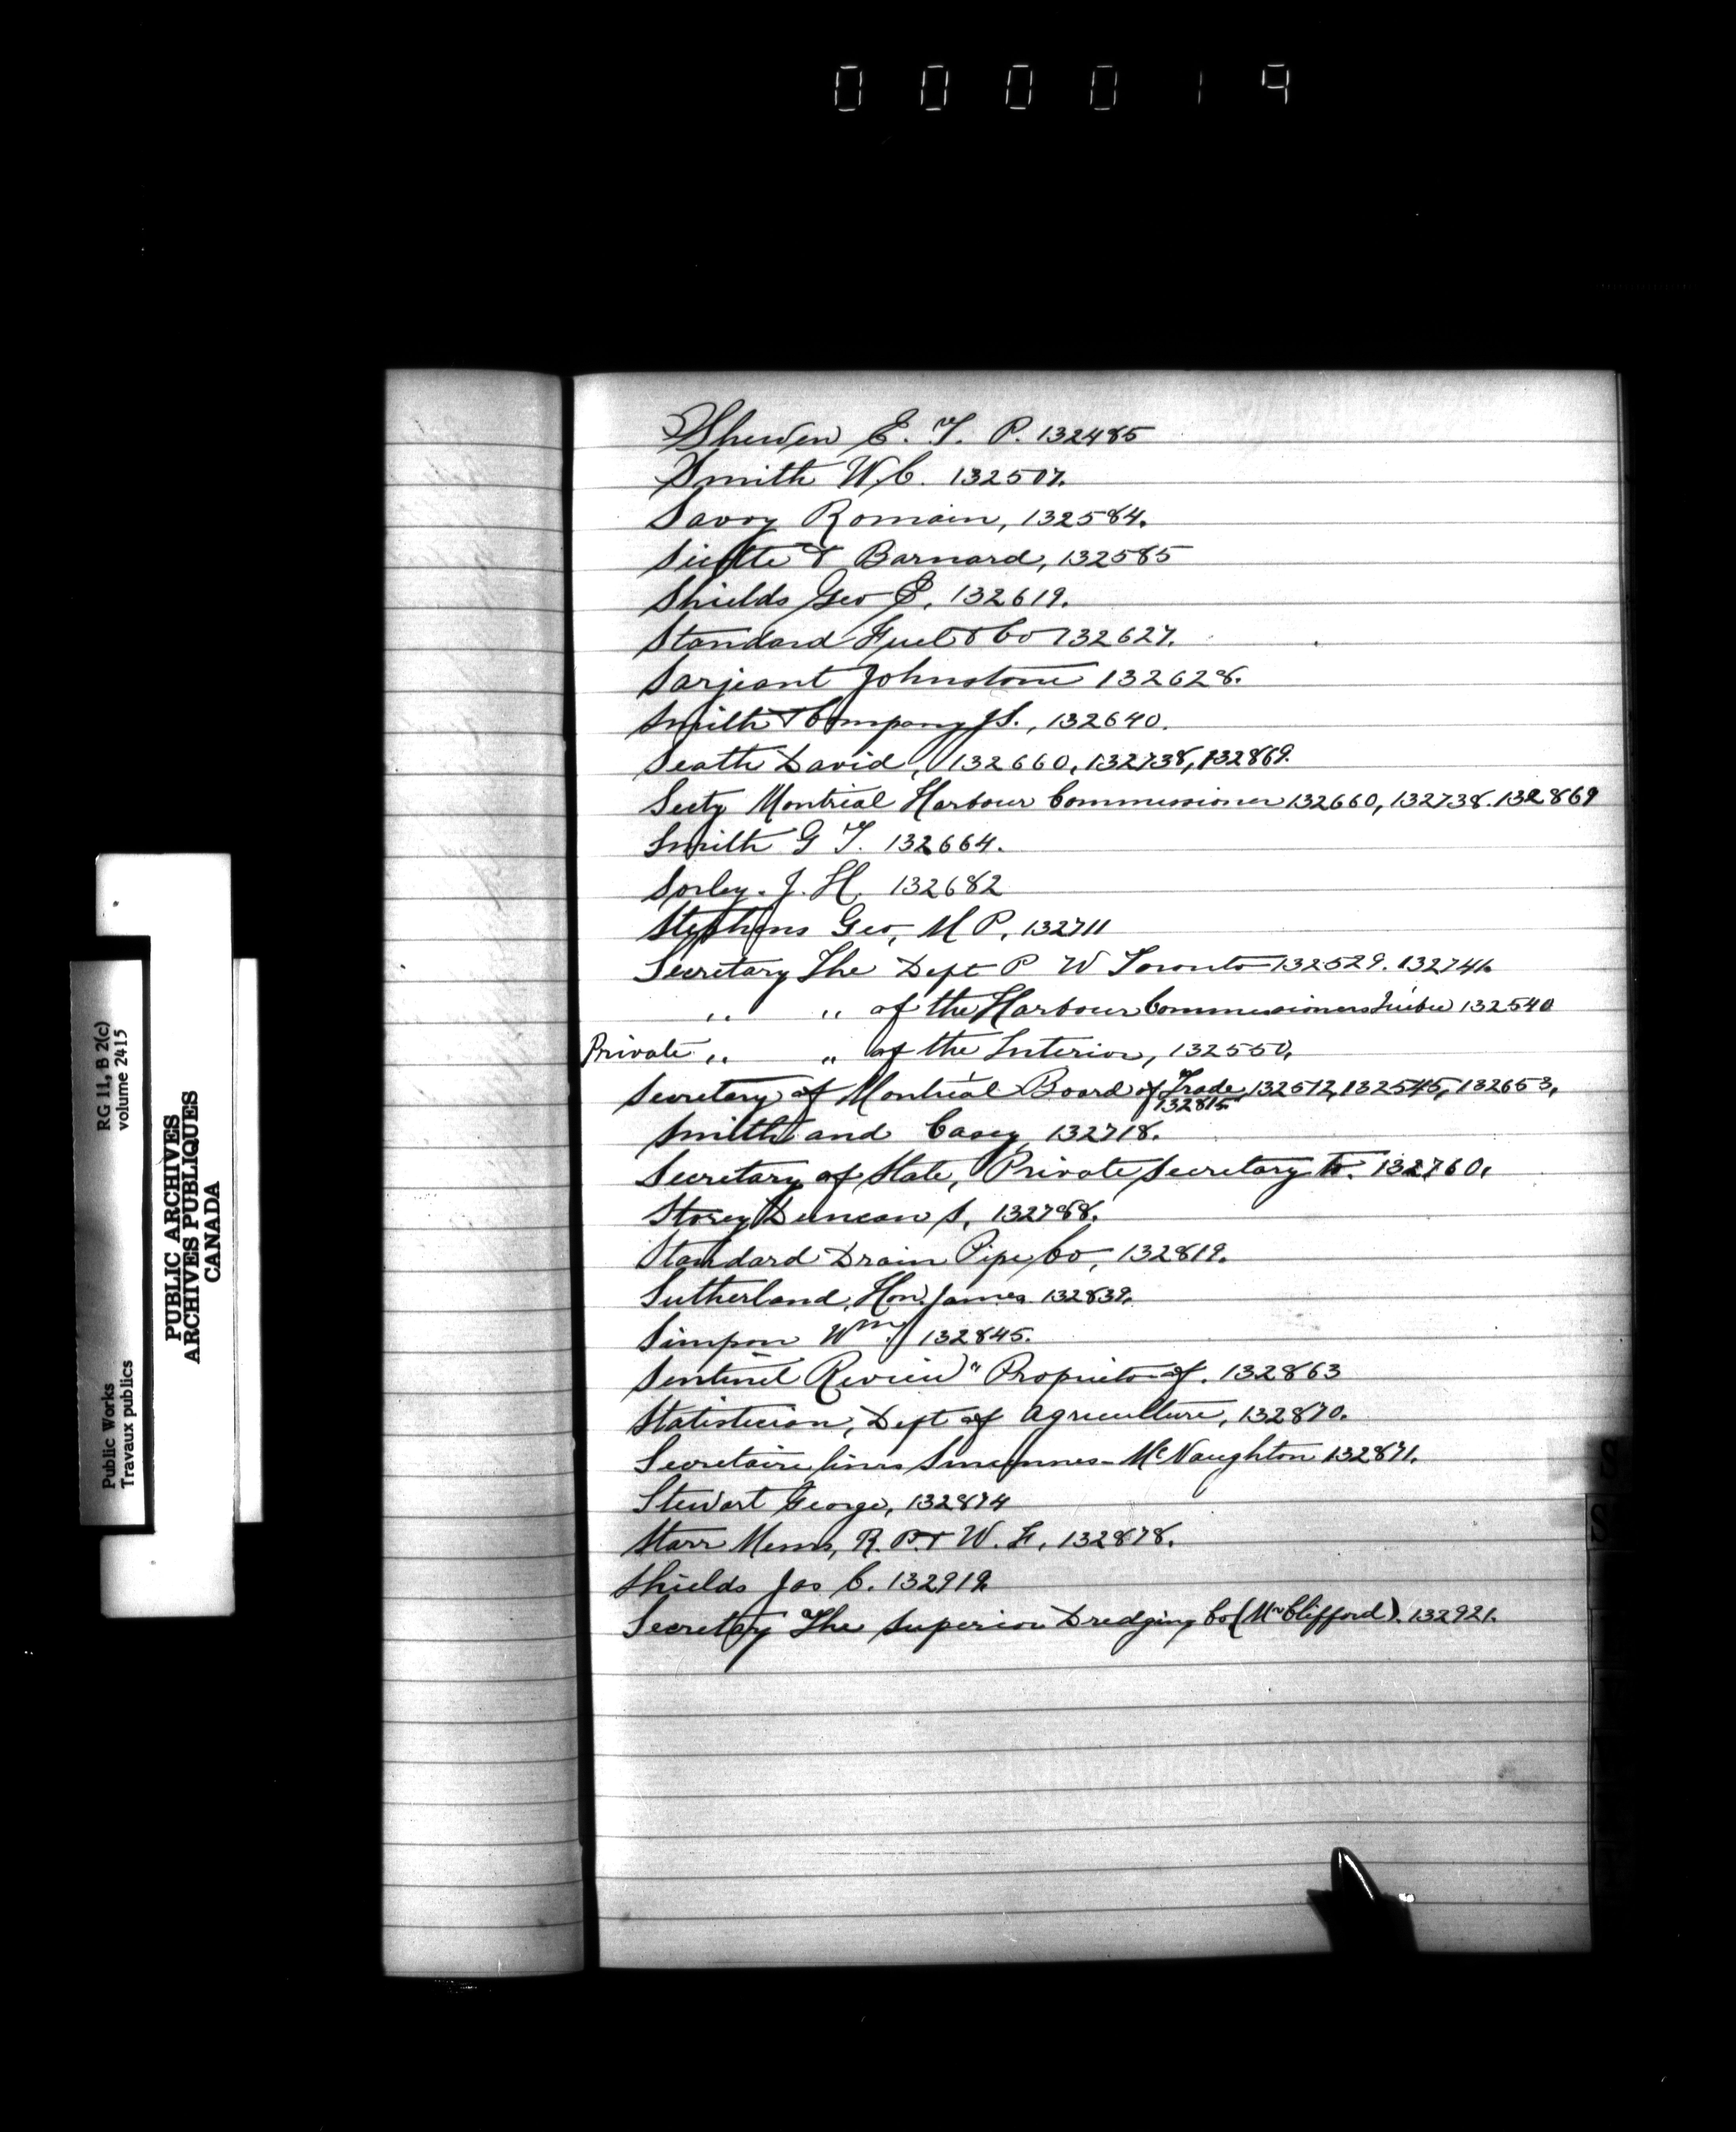 000019
Shewen E. T. P. 132485
Smith W. C. 132507.
Savoy Romain, 132584.
& Barnard, 132585
Shields Geo 132619.
Standard Fuel & Co 132627.
Sarjeant Johnstone 132628.
Smith & Company J S., 132640.
Seath David, 132660, 132738, 132869.
Secty Montreal Harbour Commissioner 132660, 132738. 132869
Smith G T. 132664.
Sorley. J. H. 132682
Stephens Geo, M P, 132711
Secretary The Dept P W Toronto 132529. 132741.
" " of the Harbour Commissioners Quebec 132540
Private " " of the Interior, 132550,
Secretary of Montreal Board of Trade, 132512, 132545, 132653,
132815
Smith and Casey, 132718.
Secretary of State, Private Secretary to. 132760.
Storey Duncan S, 132788.
Standard Drain Pipe Co, 132819.
Sutherland, Hon. James 132839.
Simpson Wm. 132845.
Sentinel Review" Proprietor of. 132863
Statistician, Dept of Agriculture, 132870.
Secretaire McNaughton 132871.
Stewart George, 132874
Starr Messrs, R. P. & W. F, 132878.
Shields Jas C. 132919.
Secretary The Superior Dredging Co (Mr Clifford). 132921.
S
S
Public Works
Travaux publics
RG 11, B 2(c)
volume 2415
PUBLIC ARCHIVES
ARCHIVES PUBLIQUES
CANADA